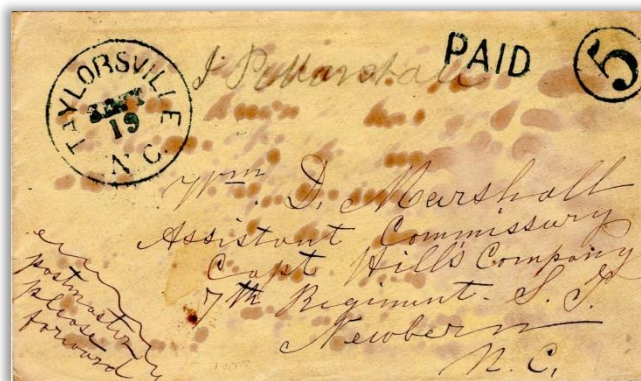 TAYLORSVILLE
SEPT
19
N.C.
J P Marshall
PAID
5
Wm D. Marshall
Assistant Commissary
Capt Hill's Company
7th Regiment. S. T.
Newbern
N. C.
postmaster
please
forward